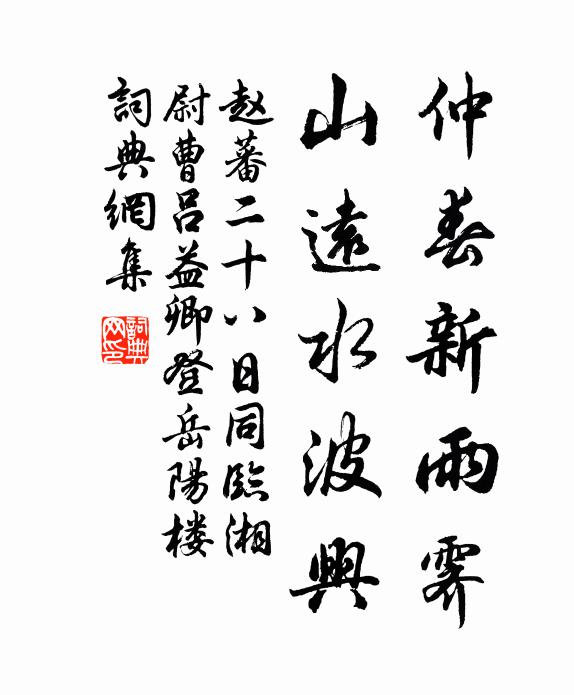 仲春新雨霽
山遠水波興
赵蕃二十八日同臨湘
尉曹吕益卿登岳陽楼
詞典網集
詞典网印